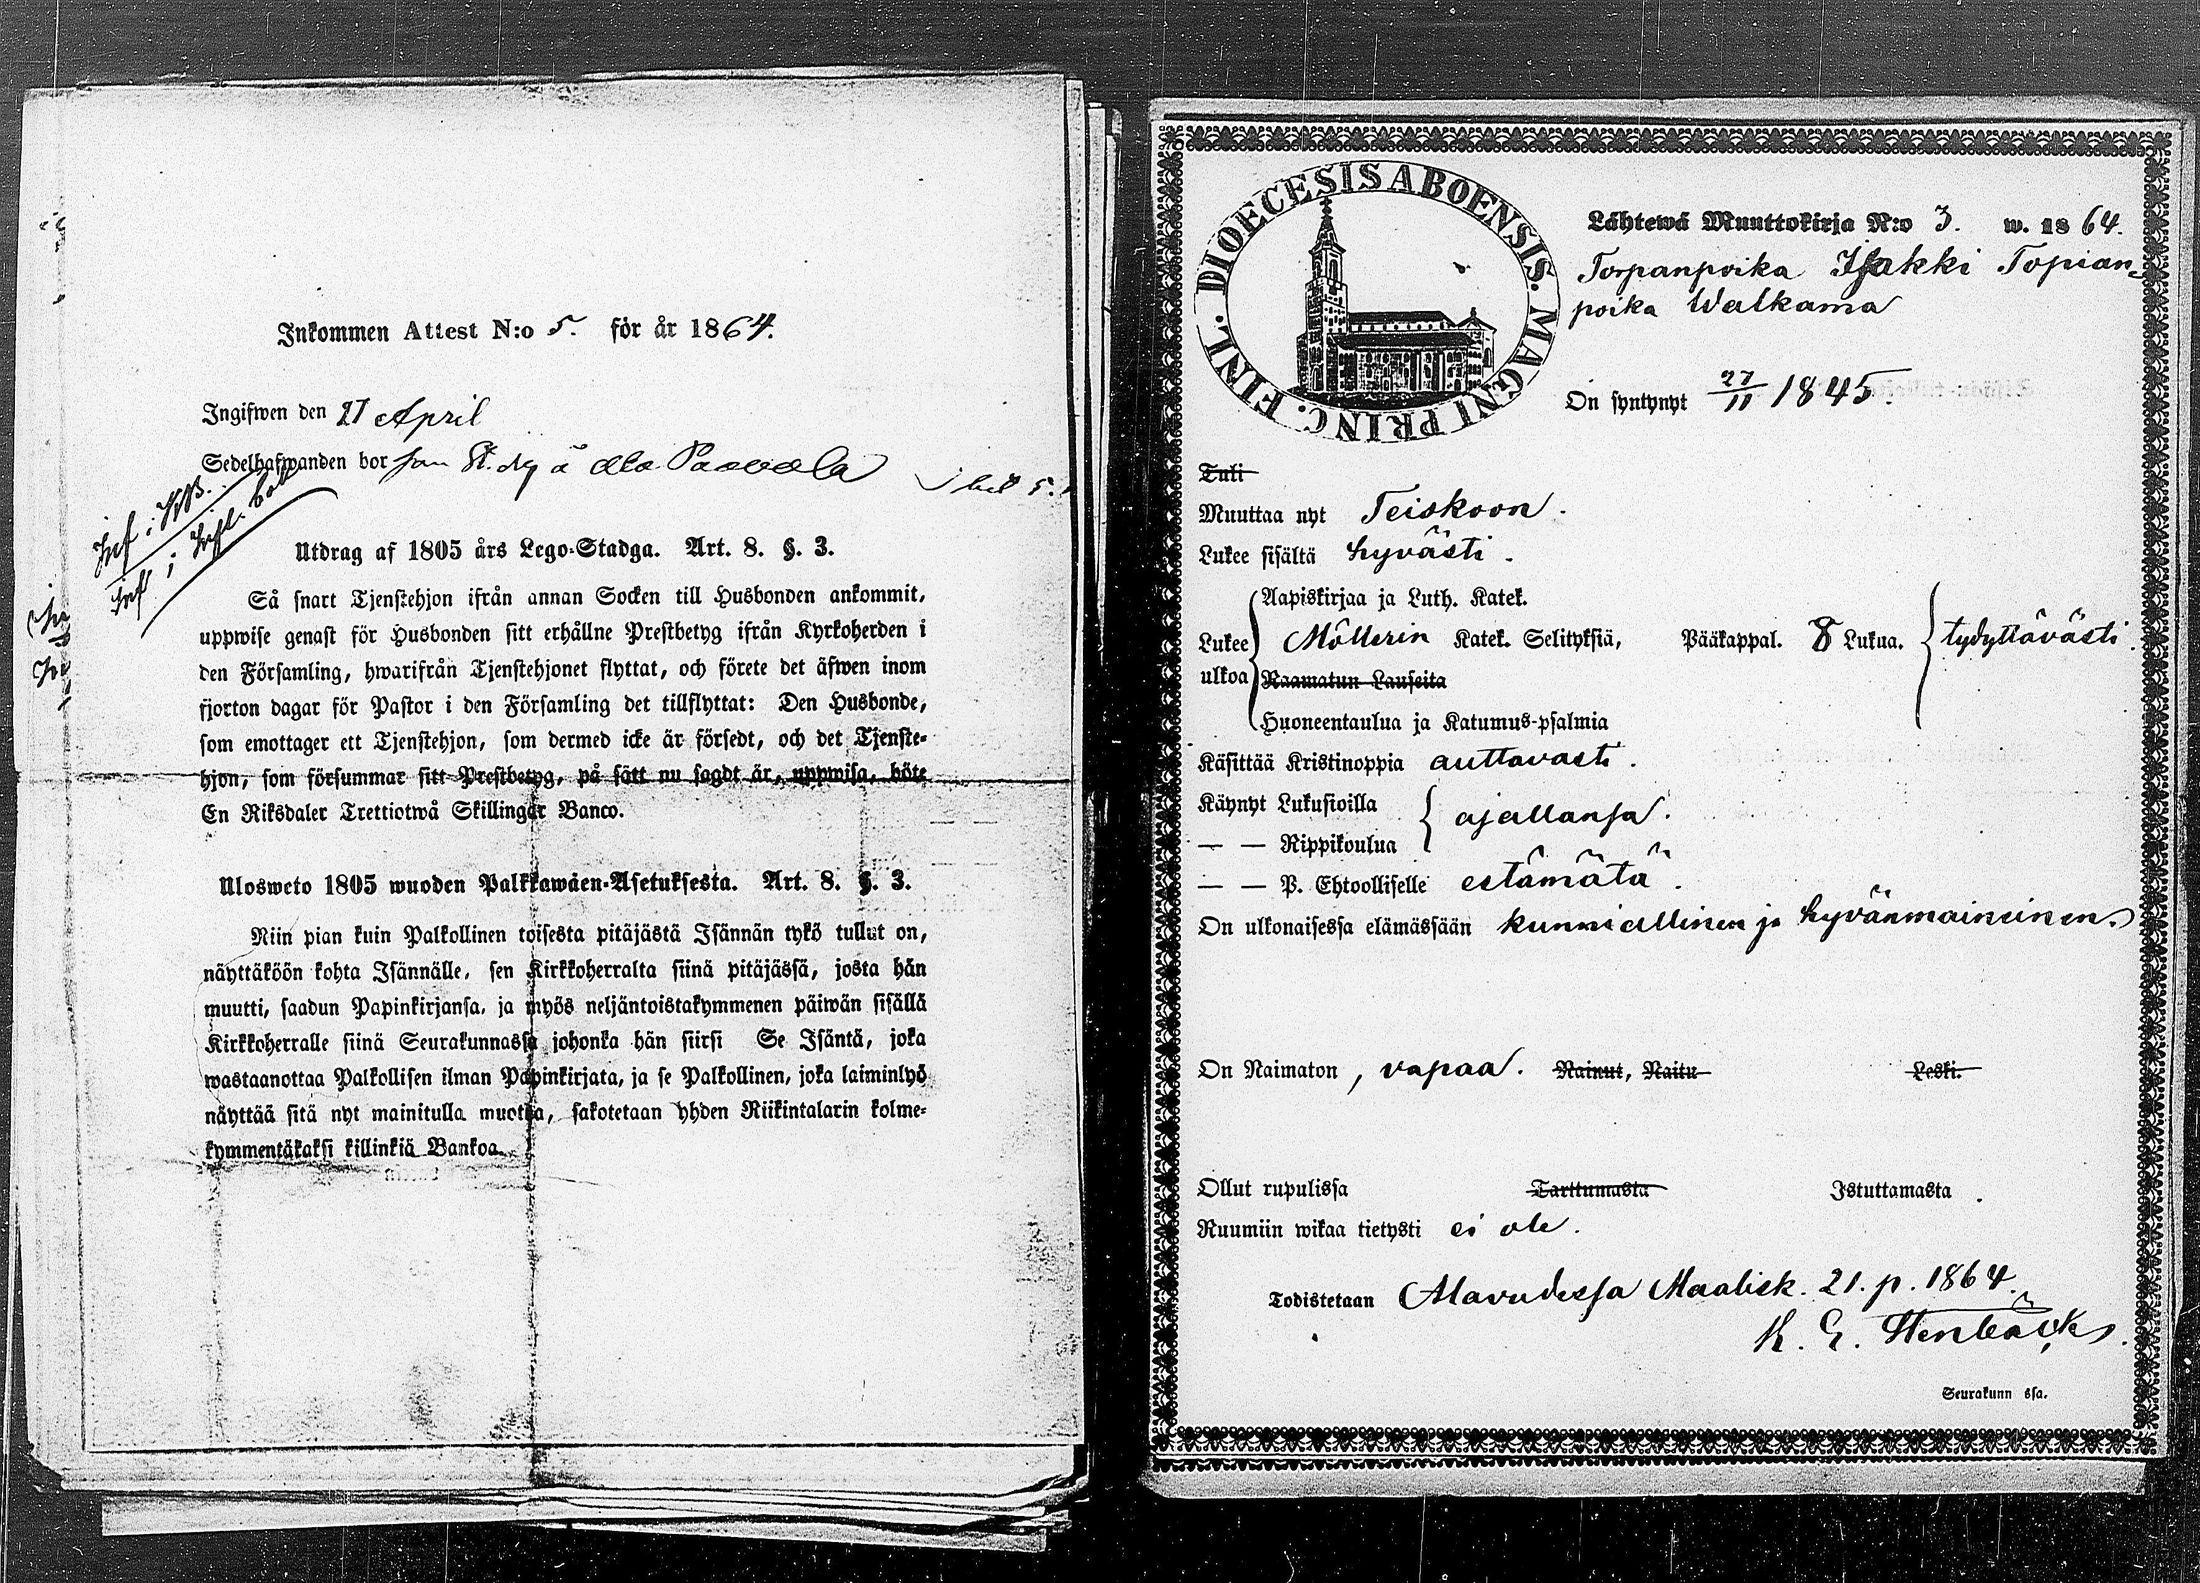 Inkommen Attest N:o 5. för år 1864.
Ingifwen den 21 April
Sedelhafwanden bor som å Ala Paavola
Utdrag af 1805 års Lego-Stadga. Art. 8. §. 3.
Så snart Tjenstehjon ifrån annan Socken till Husbonden ankommit,
uppwise genast för Husbonden sitt erhållne Prestbetyg ifrån Kyrkoherden i
den Församling, hwarifrån Tjenstehjonet flyttat, och förete det äfwen inom
fjorton dagar för Pastor i den Församling det tillflyttat: Den Husbonde,
som emottager ett Tjenstehjon, som dermed icke är försedt, och det Tjenste-
hjon, som försummar sitt Prestbetyg, på sätt nu sagdt är, uppwisa, böte
En Riksdaler Trettiotwå Skillingar Banco.
Ulosweto 1805 wuoden Palkkawäen-Asetuksesta. Art. 8. §. 3.
Niin pian kuin Palkollinen toisesta pitäjästä Isännän tykö tullut on,
näyttäköön kohta Isännälle, sen Kirkkoherralta siinä pitäjässä, josta hän
muutti, saadun Papinkirjansa, ja myös neljäntoistakymmenen päiwän sisällä
Kirkkoherralle siinä Seurakunnassa johonka hän siirsi Se Isäntä, joka
wastaanottaa Palkollisen ilman Papinkirjata, ja se Palkollinen, joka laiminlyö
näyttää sitä nyt mainitulla muotoa, sakotetaan yhden Riikintalarin kolme-
kymmentäkaksi killinkiä Bankoa.
DIOECESIS ABOENSIS. MAGNI PRINC. FINL.
Lähtewä Muuttokirja N:o 3. w. 1864.
Torpanpoika Isakki Topian-
poika Walkama
On syntynyt 27/11 1845.
Tuli
Muuttaa nyt Teiskoon.
Lukee sisältä hyvästi.
Lukee ulkoa
Aapiskirjaa ja Luth. Katek.
Möllerin Katek. Selityksiä, Pääkappal. 8 Lukua. tydyttävästi.
Raamatun Lauseita
Huoneentaulua ja Katumus-psalmia
Käsittää Kristinoppia auttavasti.
Käynyt Lukusioilla
— — Rippikoulua ajallansa.
— — P. Ehtoolliselle estämätä.
On ulkonaisessa elämässään kunniallinen ja hyvänmaineinen.
On Naimaton, vapaa. Nainut, Naitu Leski.
Ollut rupulissa Tarttumasta Istuttamasta.
Ruumiin wikaa tietysti ei ole.
Todistetaan Alavudessa Maalisk. 21. p. 1864.
K. E. Stenbäck.
Seurakunn ssa.